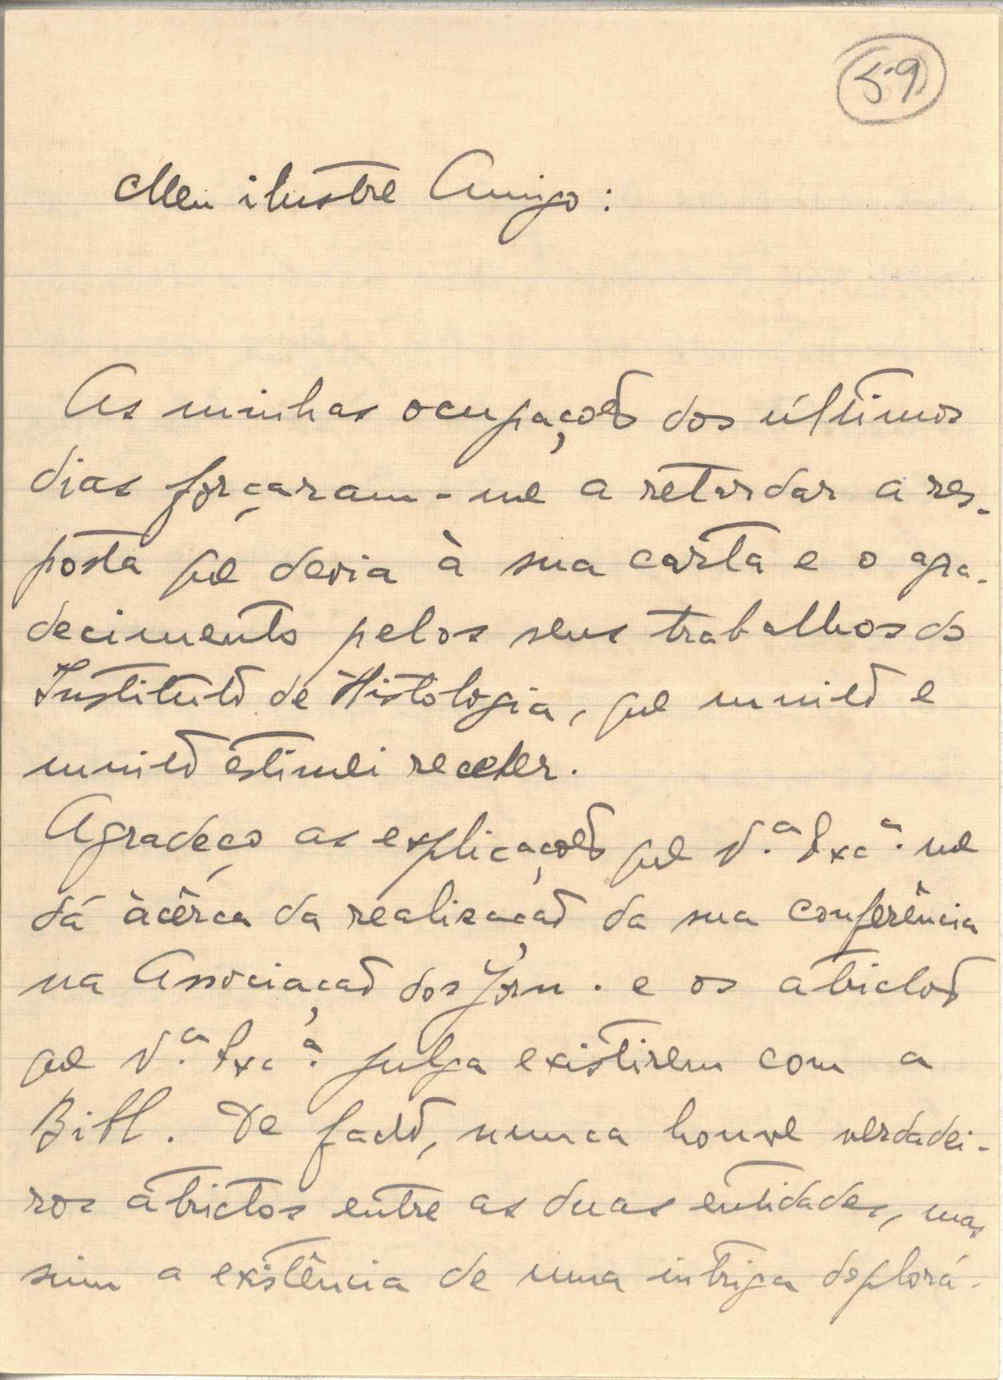 59
Meu ilustre Amigo:
As minhas ocupações dos últimos
dias forçaram-me a retardar a res-
posta que devia à sua carta e o agra-
decimento pelos seus trabalhos do
Instituto de Histologia, que muito e
muito estimei receber.
Agradeço as explicações que V.ª Exc.ª me
dá àcêrca da realização da sua conferência
na Associação dos Jorn. e os atrictos
que V.ª Exc.ª julga existirem com a
Bibl. De facto, nunca houve verdadei-
ros atrictos entre as duas entidades, mas
sim a existência de uma intriga deplorá-